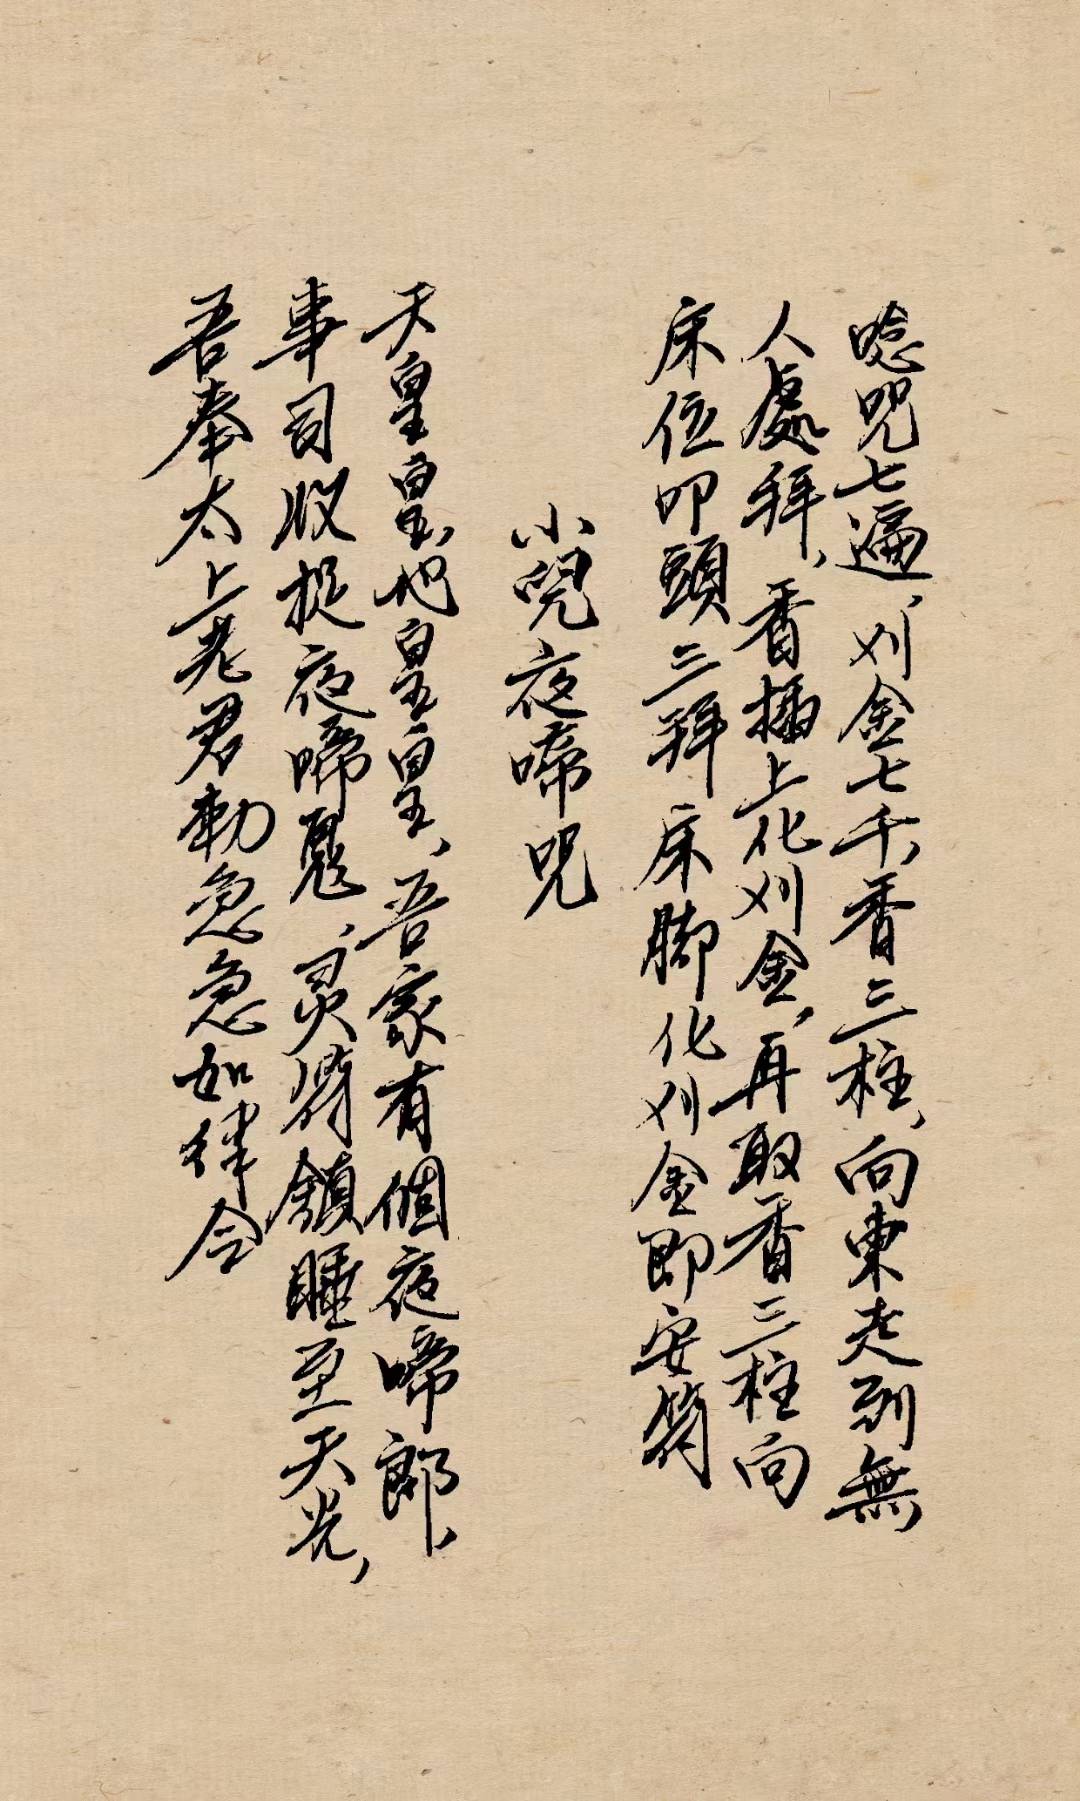 唸咒七遍、刈金七千、香三柱、向東走到無
人處拜、香插上化刈金、再取香三柱向
床位叩頭三拜床脚化刈金即安符
小兒夜啼咒
天皇皇、地皇皇、吾家有個夜啼郎、
事司收捉夜啼鬼、灵符鎮睡至天光，
吾奉太上老君勅急急如律令